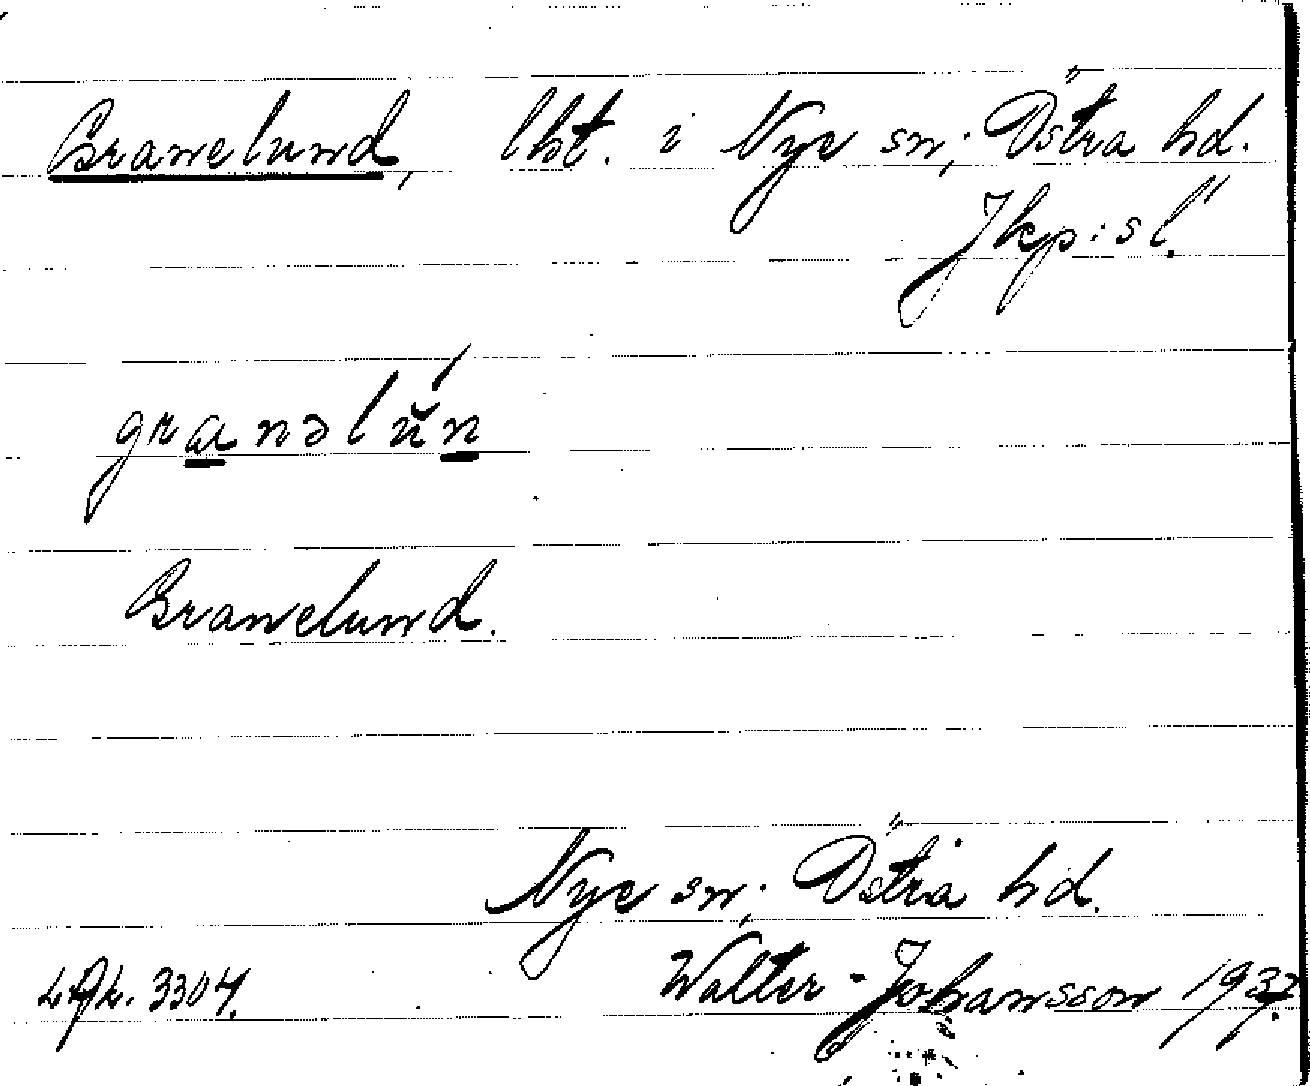 Granelund, lht. i Nye sn; Östra hd.
Jkp:s l.
granəlŭ́n
Granelund.
Nye sn; Östra hd.
3304. Walter Johansson 1937.